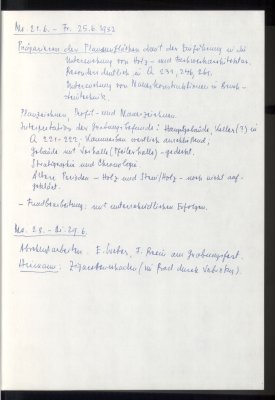 Mo. 21.6. - Fr. 25.6.1982
Präparieren der Planumsflächen dient der Einführung in die
Untersuchung von Holz- und Fachwerkarchitektur,
besonders deutlich in Q 231, 246, 261.
Untersuchung von Mauerkonstruktionen in Bruch-
steintechnik.
Planzeichnen, Profil- und Mauerzeichnen.
Interpretation der Grabungsbefunde: Hauptgebäude, Keller (?) in
Q 221-222, Kammern westlich anschließend,
Gebäude mit Vorhalle (Pfeilerhalle) - gedeckt.
Stratigraphie und Chronologie
Ältere Perioden - Holz und Stein/Holz - noch nicht auf-
geklärt.
- Fundbearbeitung: mit unterschiedlichen Erfolgen.
Mo. 28. - Di. 29.6.
Abschlußarbeiten. E. Weber, F. am Grabungsfest.
(im Grad durch